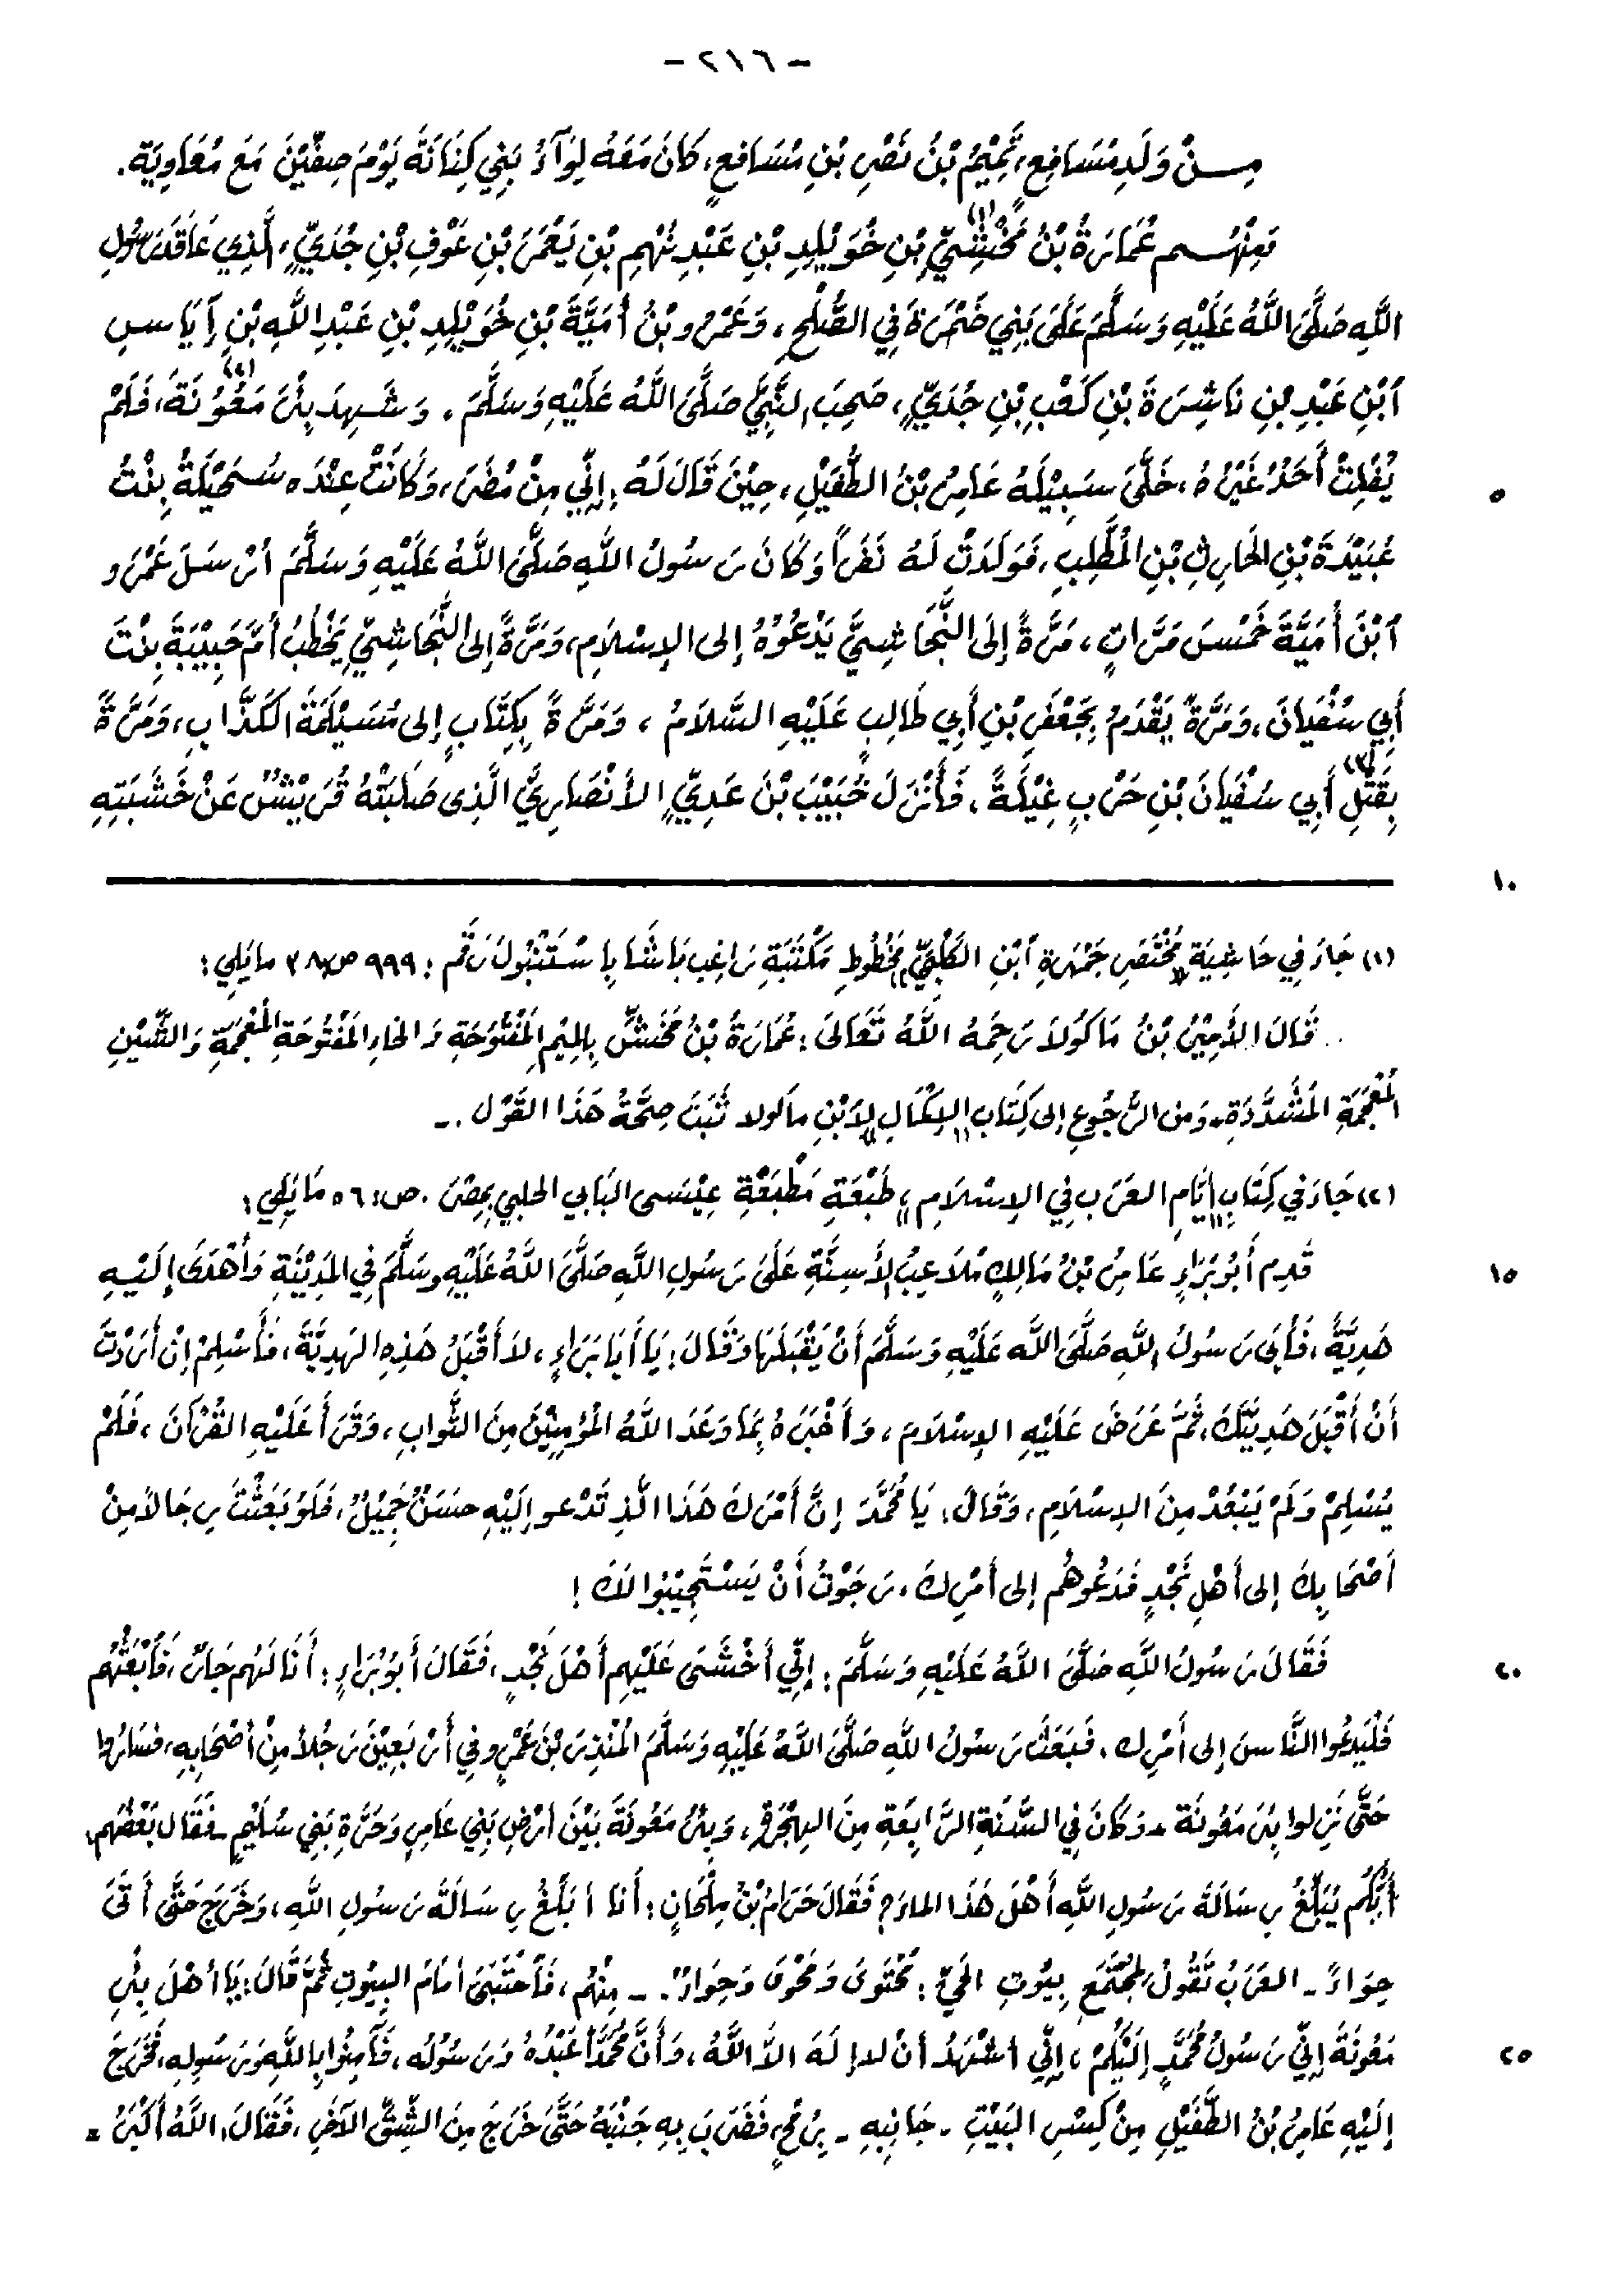 - ٢١٦ -
مِنْ وَلَدِ مُسَافِعٍ، تَمِيْمُ بْنُ نَصْرِ بْنِ مُسَافِعٍ، كَانَ مَعَهُ لِوَآءُ بَنِي كِنَانَةَ يَوْمَ صِفِّيْنَ مَعَ مُعَاوِيَةَ.
وَمِنْهُم عُمَارَةُ بْنُ مَخْشِيِّ(١) بْنِ خُوَيْلِدِ بْنِ عَبْدِ نُهْمِ بْنِ يَعْمَرَ بْنِ عَوْفِ بْنِ جُدَيٍّ، الَّذِي عَاقَدَ رَسُولَ
اللَّهِ صَلَّى اللَّهُ عَلَيْهِ وَسَلَّمَ عَلَى بَنِي ضَمْرَةَ فِي الصُّلْحِ، وَعَمْرُو بْنُ أُمَيَّةَ بْنِ خُوَيْلِدِ بْنِ عَبْدِ اللَّهِ بْنِ إِيَاسِ
ٱبْنِ عَبْدِ بْنِ نَاشِرَةَ بْنِ كَعْبِ بْنِ جُدَيٍّ، صَحِبَ النَّبِيَّ صَلَّى اللَّهُ عَلَيْهِ وَسَلَّمَ، وَشَهِدَ بِئْرَ مَعُوْنَةَ(٢)، فَلَمْ
يُفْلِتْ أَحَدٌ غَيْرُهُ، خَلَّى سَبِيْلَهُ عَامِرُ بْنُ الطُّفَيْلِ، حِيْنَ قَالَ لَهُ: إِنِّي مِنْ مُضَرَ، وَكَانَتْ عِنْدَه سُخَيْلَةُ بِنْتُ
٥
عُبَيْدَةَ بْنِ الحَارِثِ بْنِ الْمُطَّلِبِ، فَوَلَدَتْ لَهُ نَفَراً وَكَانَ رَسُولُ اللَّهِ صَلَّى اللَّهُ عَلَيْهِ وَسَلَّمَ أَرْسَلَ عَمْرَو
ٱبْنَ أُمَيَّةَ خَمْسَ مَرَّاتٍ، مَرَّةً إِلَى النَّجَاشِيِّ يَدْعُوْهُ إِلى الإِسْلَامِ، وَمَرَّةً إِلى النَّجَاشِيِّ يَخْطُبُ أُمَّ حَبِيْبَةَ بِنْتَ
أَبِي سُفْيَانَ، وَمَرَّةً يَقْدَمُ بِجَعْفَرِ بْنِ أَبِي طَالِبٍ عَلَيْهِ السَّلَامُ، وَمَرَّةً بِكِتَابٍ إِلى مُسَيْلَمَةَ الكَذَّابِ، وَمَرَّةً
بِقَتْلِ(٣) أَبِي سُفْيَانَ بْنِ حَرْبٍ غِيْلَةً، فَأَنْزَلَ خُبَيْبَ بْنَ عَدِيٍّ الأَنْصَارِيَّ الَّذِى صَلَبَتْهُ قُرَيْشٌ عَنْ خَشَبَتِهِ
١٠
(١) جَاءَ فِي حَاشِيَةِ "مُخْتَصَرِ جَمْهَرَةِ ٱبْنِ الكَلْبِيِّ" مَخْطُوطِ مَكْتَبَةِ رَاغِب بَاشَا بِاسْتَنْبُولَ رَقَم: ٩٩٩ ص: ٣٨ مايَلِي:
قَالَ الأَمِيْرُ بْنُ مَاكُولَا رَحِمَهُ اللَّهُ تَعَالَى: عُمَارَةُ بْنُ مَخَشٍّ بِالمِيْمِ الْمَفْتُوحَةِ وَالخَاءِ الْمَفْتُوحَةِ الْمُعْجَمَةِ وَالشِّيْنِ
الْمُعْجَمَةِ الْمُشَدَّدَةِ. وَمن الرُّجُوعِ إِلى كِتَابِ "الإِكْمَالِ" لِابْنِ ماكولا ثَبَتَ صِحَّةُ هَذَا القَوْل.-
(٢) جَاءَ فِي كِتَابِ "أَيَّامِ العَرَبِ فِي الإِسْلَامِ" طَبْعَةِ مَطْبَعَةِ عِيْسَى البَابي الحلبي بِمِصْرَ. ص: ٥٦ مَايَلِي:
قَدِمَ أَبُو بَرَاءٍ عَامِرُ بْنُ مَالِكٍ مُلَاعِبُ الأَسِنَّةِ عَلَى رَسُولِ اللَّهِ صَلَّى اللَّهُ عَلَيْهِ وسَلَّمَ فِي المَدِيْنَةِ وَأَهْدَى إِلَيْهِ
١٥
هَدِيَّةً، فَأَبَى رَسُولُ اللَّهِ صَلَّى اللَّه عَلَيْهِ وَسَلَّمَ أَنْ يَقْبَلَهَا وَقَالَ: يَا أَبَا بَرَاءٍ، لاَ أَقْبَلُ هَذِهِ الهَدِيَّةَ، فَأَسْلِمْ إِنْ أَرَدْتَ
أَنْ أَقْبَلَ هَدِيَّتَكَ، ثُمَّ عَرَضَ عَلَيْهِ الإِسْلَامَ، وَأَخْبَرَهُ بِمَا وَعَدَ اللَّهُ الْمُؤْمِنِيْنَ مِنَ الثَّوابِ، وَقَرَأَ عَلَيْهِ القُرْآنَ، فَلَمْ
يُسْلِمْ وَلَمْ يَبْعُدْ مِنَ الإِسْلَامِ، وَقَالَ: يَا مُحَمَّدُ إِنَّ أَمْرَكَ هَذَا الَّذِ تَدْعو إِلَيْهِ حسَنٌ جَمِيْلٌ، فَلَوْ بَعَثْتَ رِجَالاً مِنْ
أَصْحَابِكَ إِلى أَهْلِ نَجْدٍ فَدَعُوهُم إِلى أَمْرِكَ، رَجَوْتُ أَنْ يَسْتَجِيْبُوا لَكَ!
فَقَالَ رَسُولُ اللَّهِ صَلَّى اللَّهُ عَلَيْهِ وَسَلَّمَ: إِنِّي أَخْشَى عَلَيْهِم أَهْلَ نَجْدٍ، فَقَالَ أَبُو بَرَاءٍ: أَنَا لَهُم جَارٌ، فَابْعَثْهُم
٢٠
فَلْيَدْعُوا النَّاسَ إِلى أَمْرِك، فَبَعَثَ رَسُولُ اللَّهِ صَلَّى اللَّهُ عَلَيْهِ وَسَلَّمَ الْمُنْذِرَ بْنَ عَمْرٍو فِي أَرْبَعِيْنَ رَجُلاً مِنْ أَصْحَابِهِ، فسَارُوا
حَتَّى نَزَلوا بِئْرَ مَعُونَة - وَكَانَ فِي السَّنَةِ الرَّابِعَةِ مِنَ الهِجْرَةِ، وَبِئْرُ مَعُونَةَ بَيْنَ أَرْضِ بَنِي عَامِرٍ وَحَرَّةِ بَنِي سُلَيْمٍ - فَقَال بَعْضُهُم:
أَيُّكُم يُبَلِّغُ رِسَالَةَ رَسُولِ اللَّهِ أَهْلَ هَذَا الماءِ؟ فَقَالَ حَرَامُ بْنُ مِلْحَانٍ: أَنَا أُبَلِّغُ رِسَالَةَ رَسُولِ اللَّهِ، وَخَرَجَ حَتَّى أَتَى
حِوَاءً - العَرَبُ تَقُولُ لِمُجْتَمَعِ بِيُوتِ الحَيِّ: مُحْتَوَىً وَمَحْوَىً وَحِوَاءٌ. - مِنْهُم، فَاحْتَبَى أَمَامَ البِيُوتِ ثُمَّ قَالَ: يَا أَهْلَ بِئْرِ
مَعُونَةَ إِنِّي رَسُولُ مُحَمَّدٍ إِلَيْكُمْ، إِنِّي أَشْهَدُ أَنْ لاإِلَهَ الاَّ اللَّهُ، وَأَنَّ مُحَمَّداً عَبْدُهُ وَرَسُوْلُه، فَآمِنُوا بِاللَّهِ وَرَسُولِهِ، فَخَرَجَ
٢٥
إِلَيْهِ عَامِرُ بْنُ الطُّفَيْلِ مِنْ كِسْرِ البَيْتِ - جَانِبِهِ - بِرُمْحٍ، فَضَرَبَ بِهِ جَنْبَهُ حَتَّى خَرَجَ مِنَ الشِّقِّ الآخَرِ، فَقَالَ: اللَّهُ أَكْبَرُ =